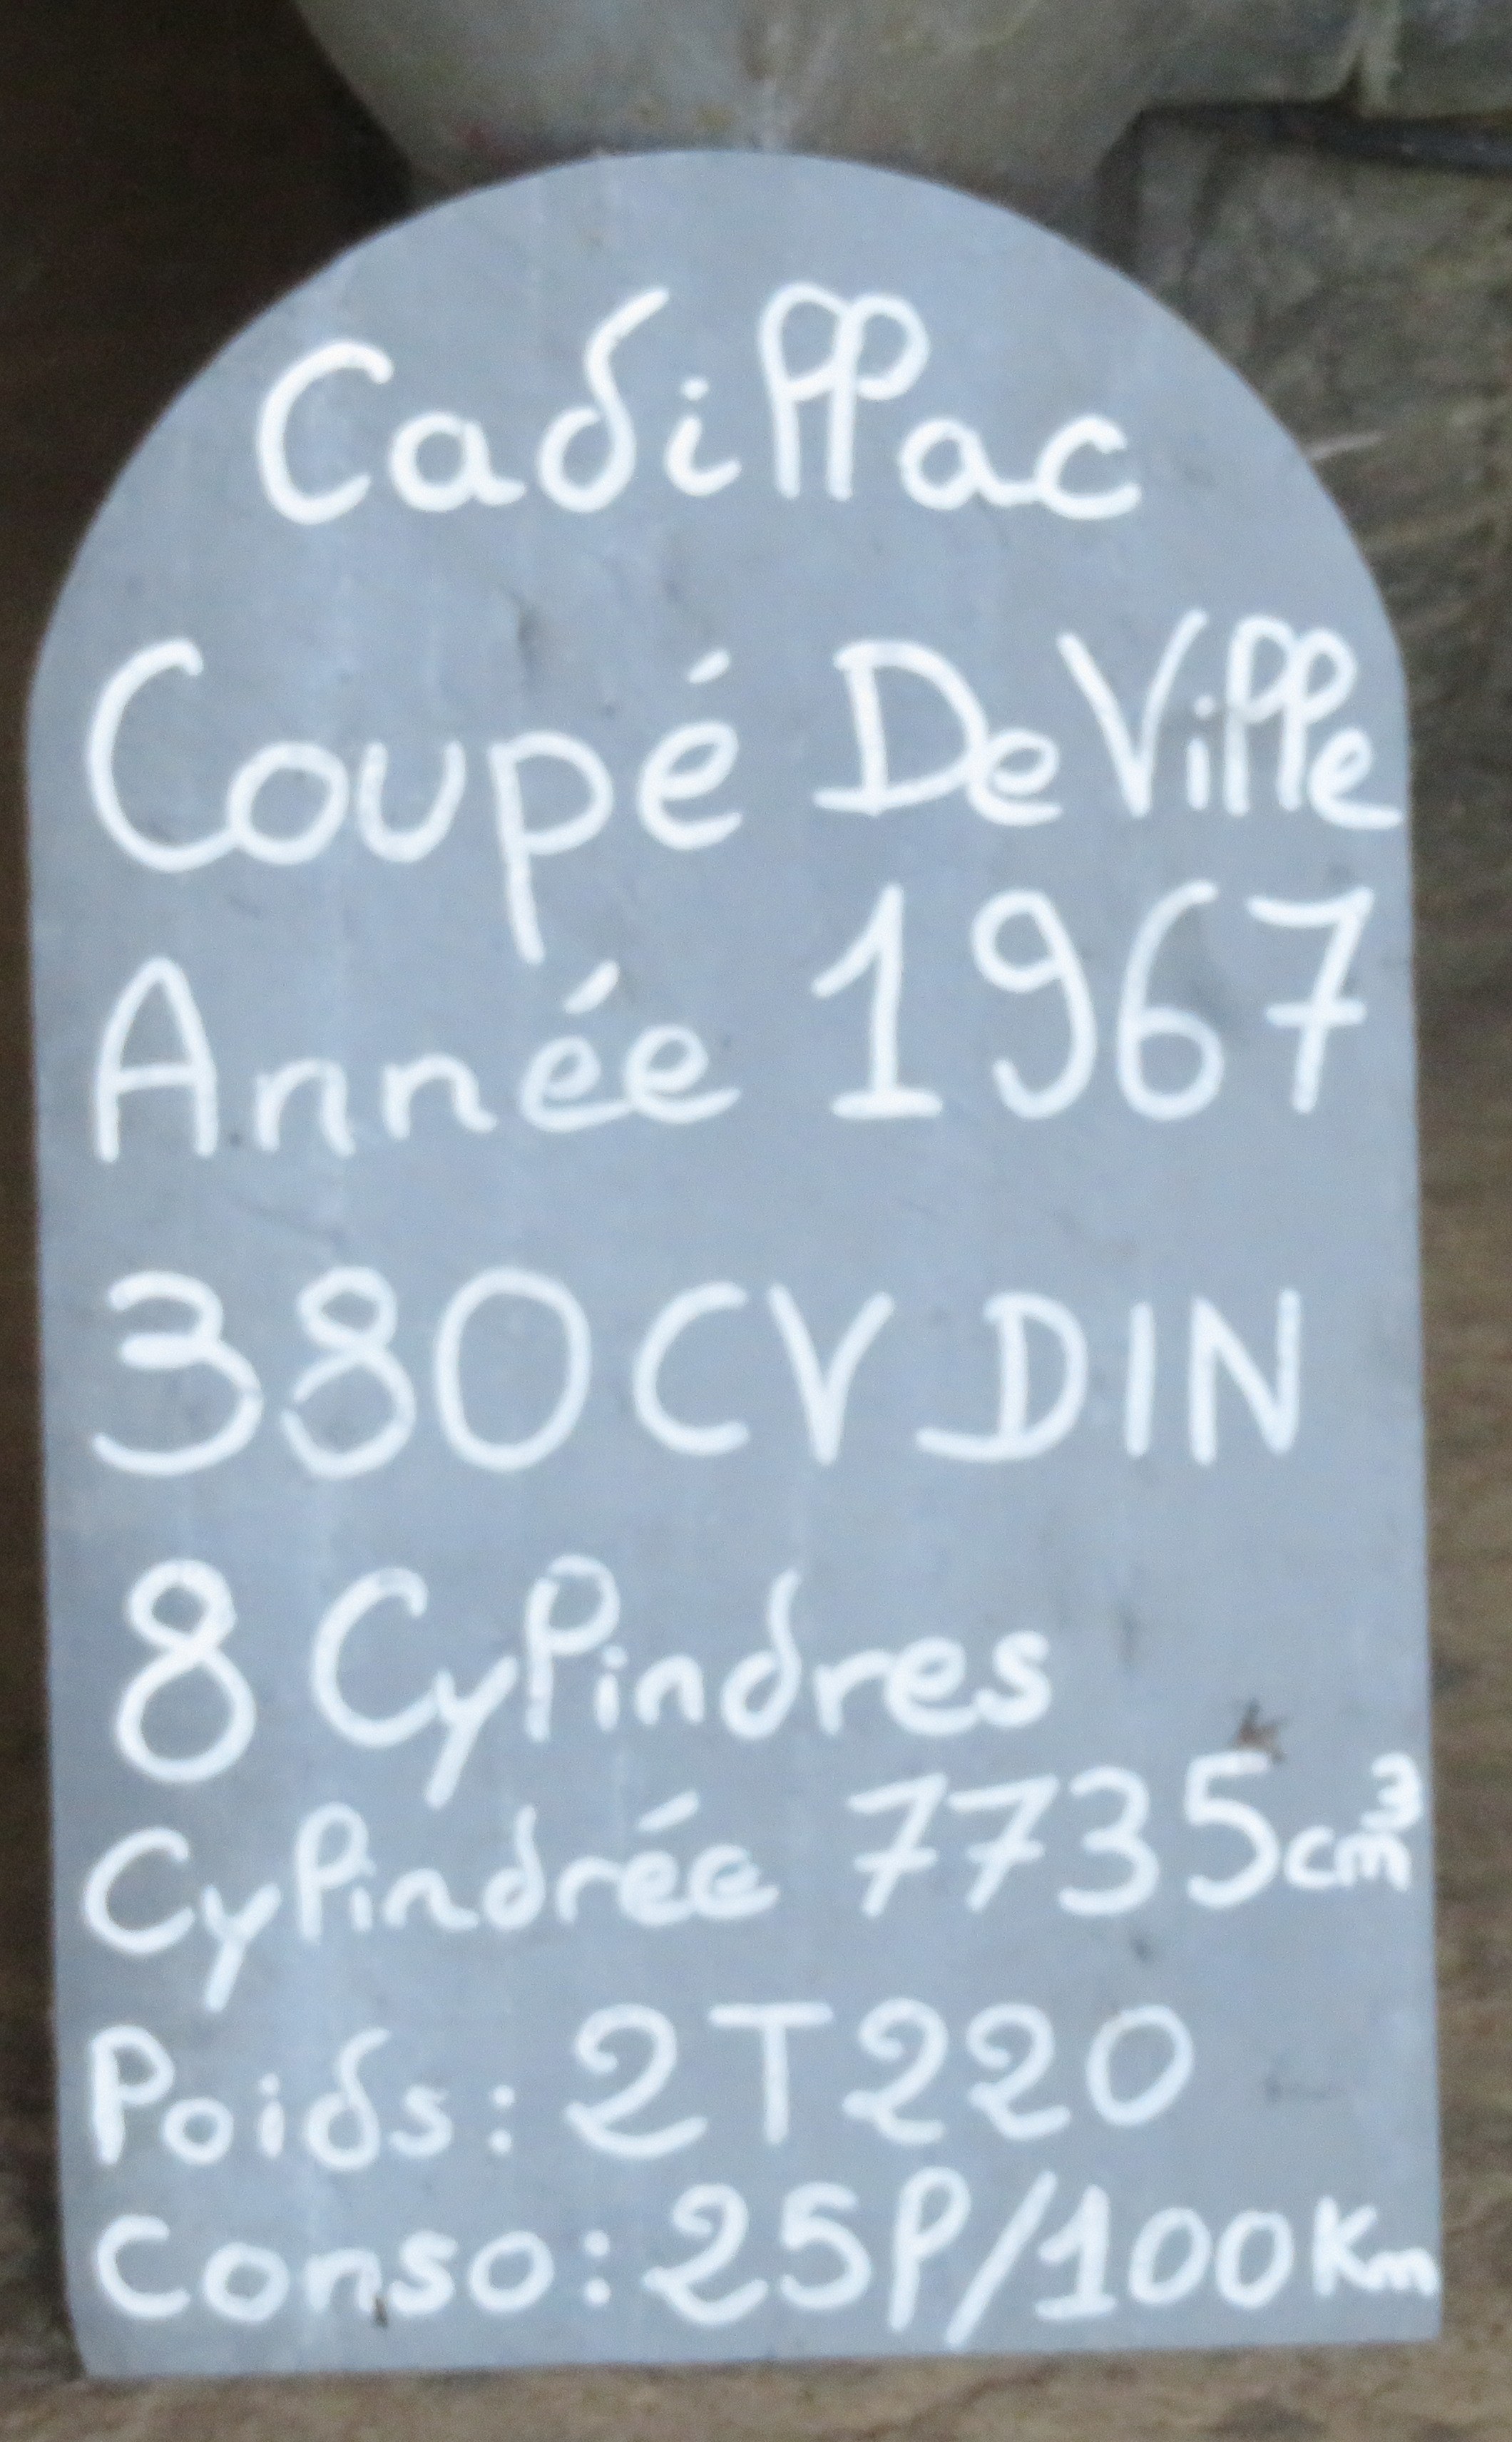 Cadillac
Coupé De Ville
Année 1967
380 CV DIN
8 Cylindres
Cylindrée 7735 cm³
Poids : 2T220
Conso : 25l/100Km